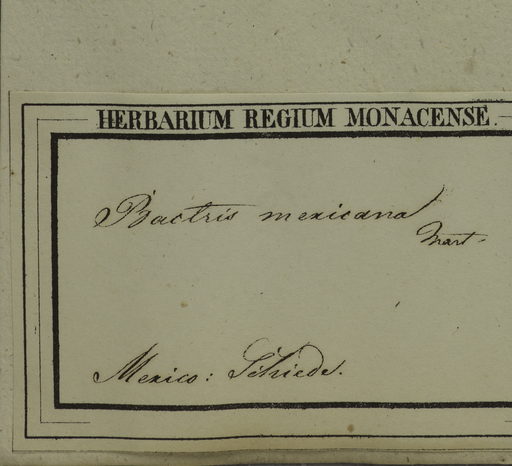 HERBARIUM REGIUM MONACENSE.
Bactris mexicana
Mart.
Mexico: Schiede.